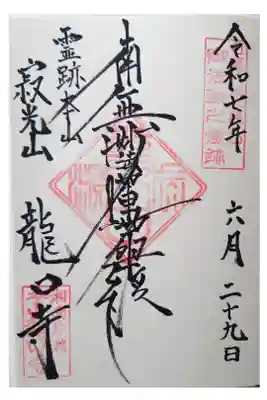 令和七年 六月二十九日
南無妙法蓮華經
霊跡本山
寂光山 龍口寺